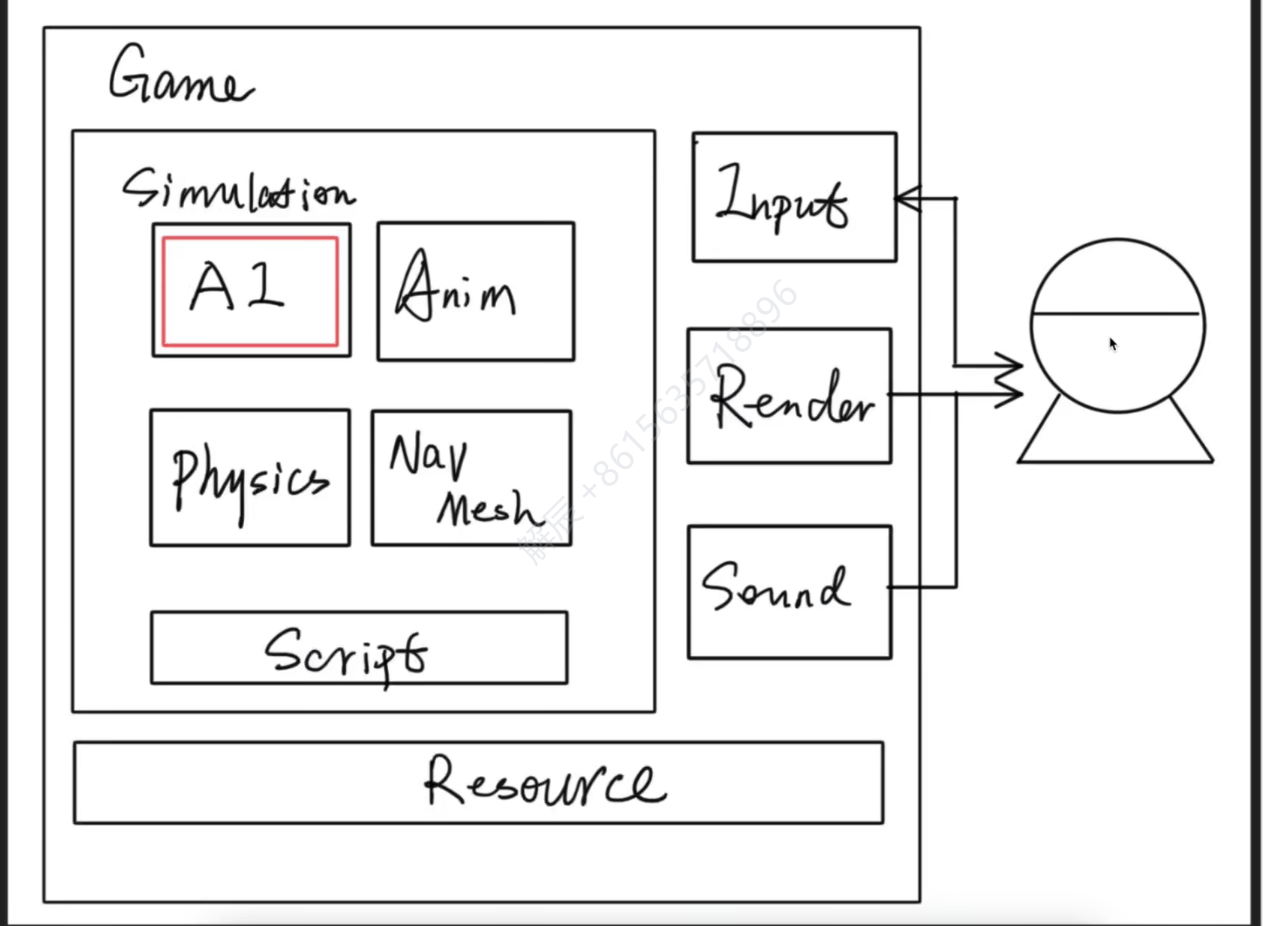 Game
Simulation
AI
Anim
Physics
Nav
Mesh
Script
Input
Render
Sound
Resource
解辰 +8615635718896